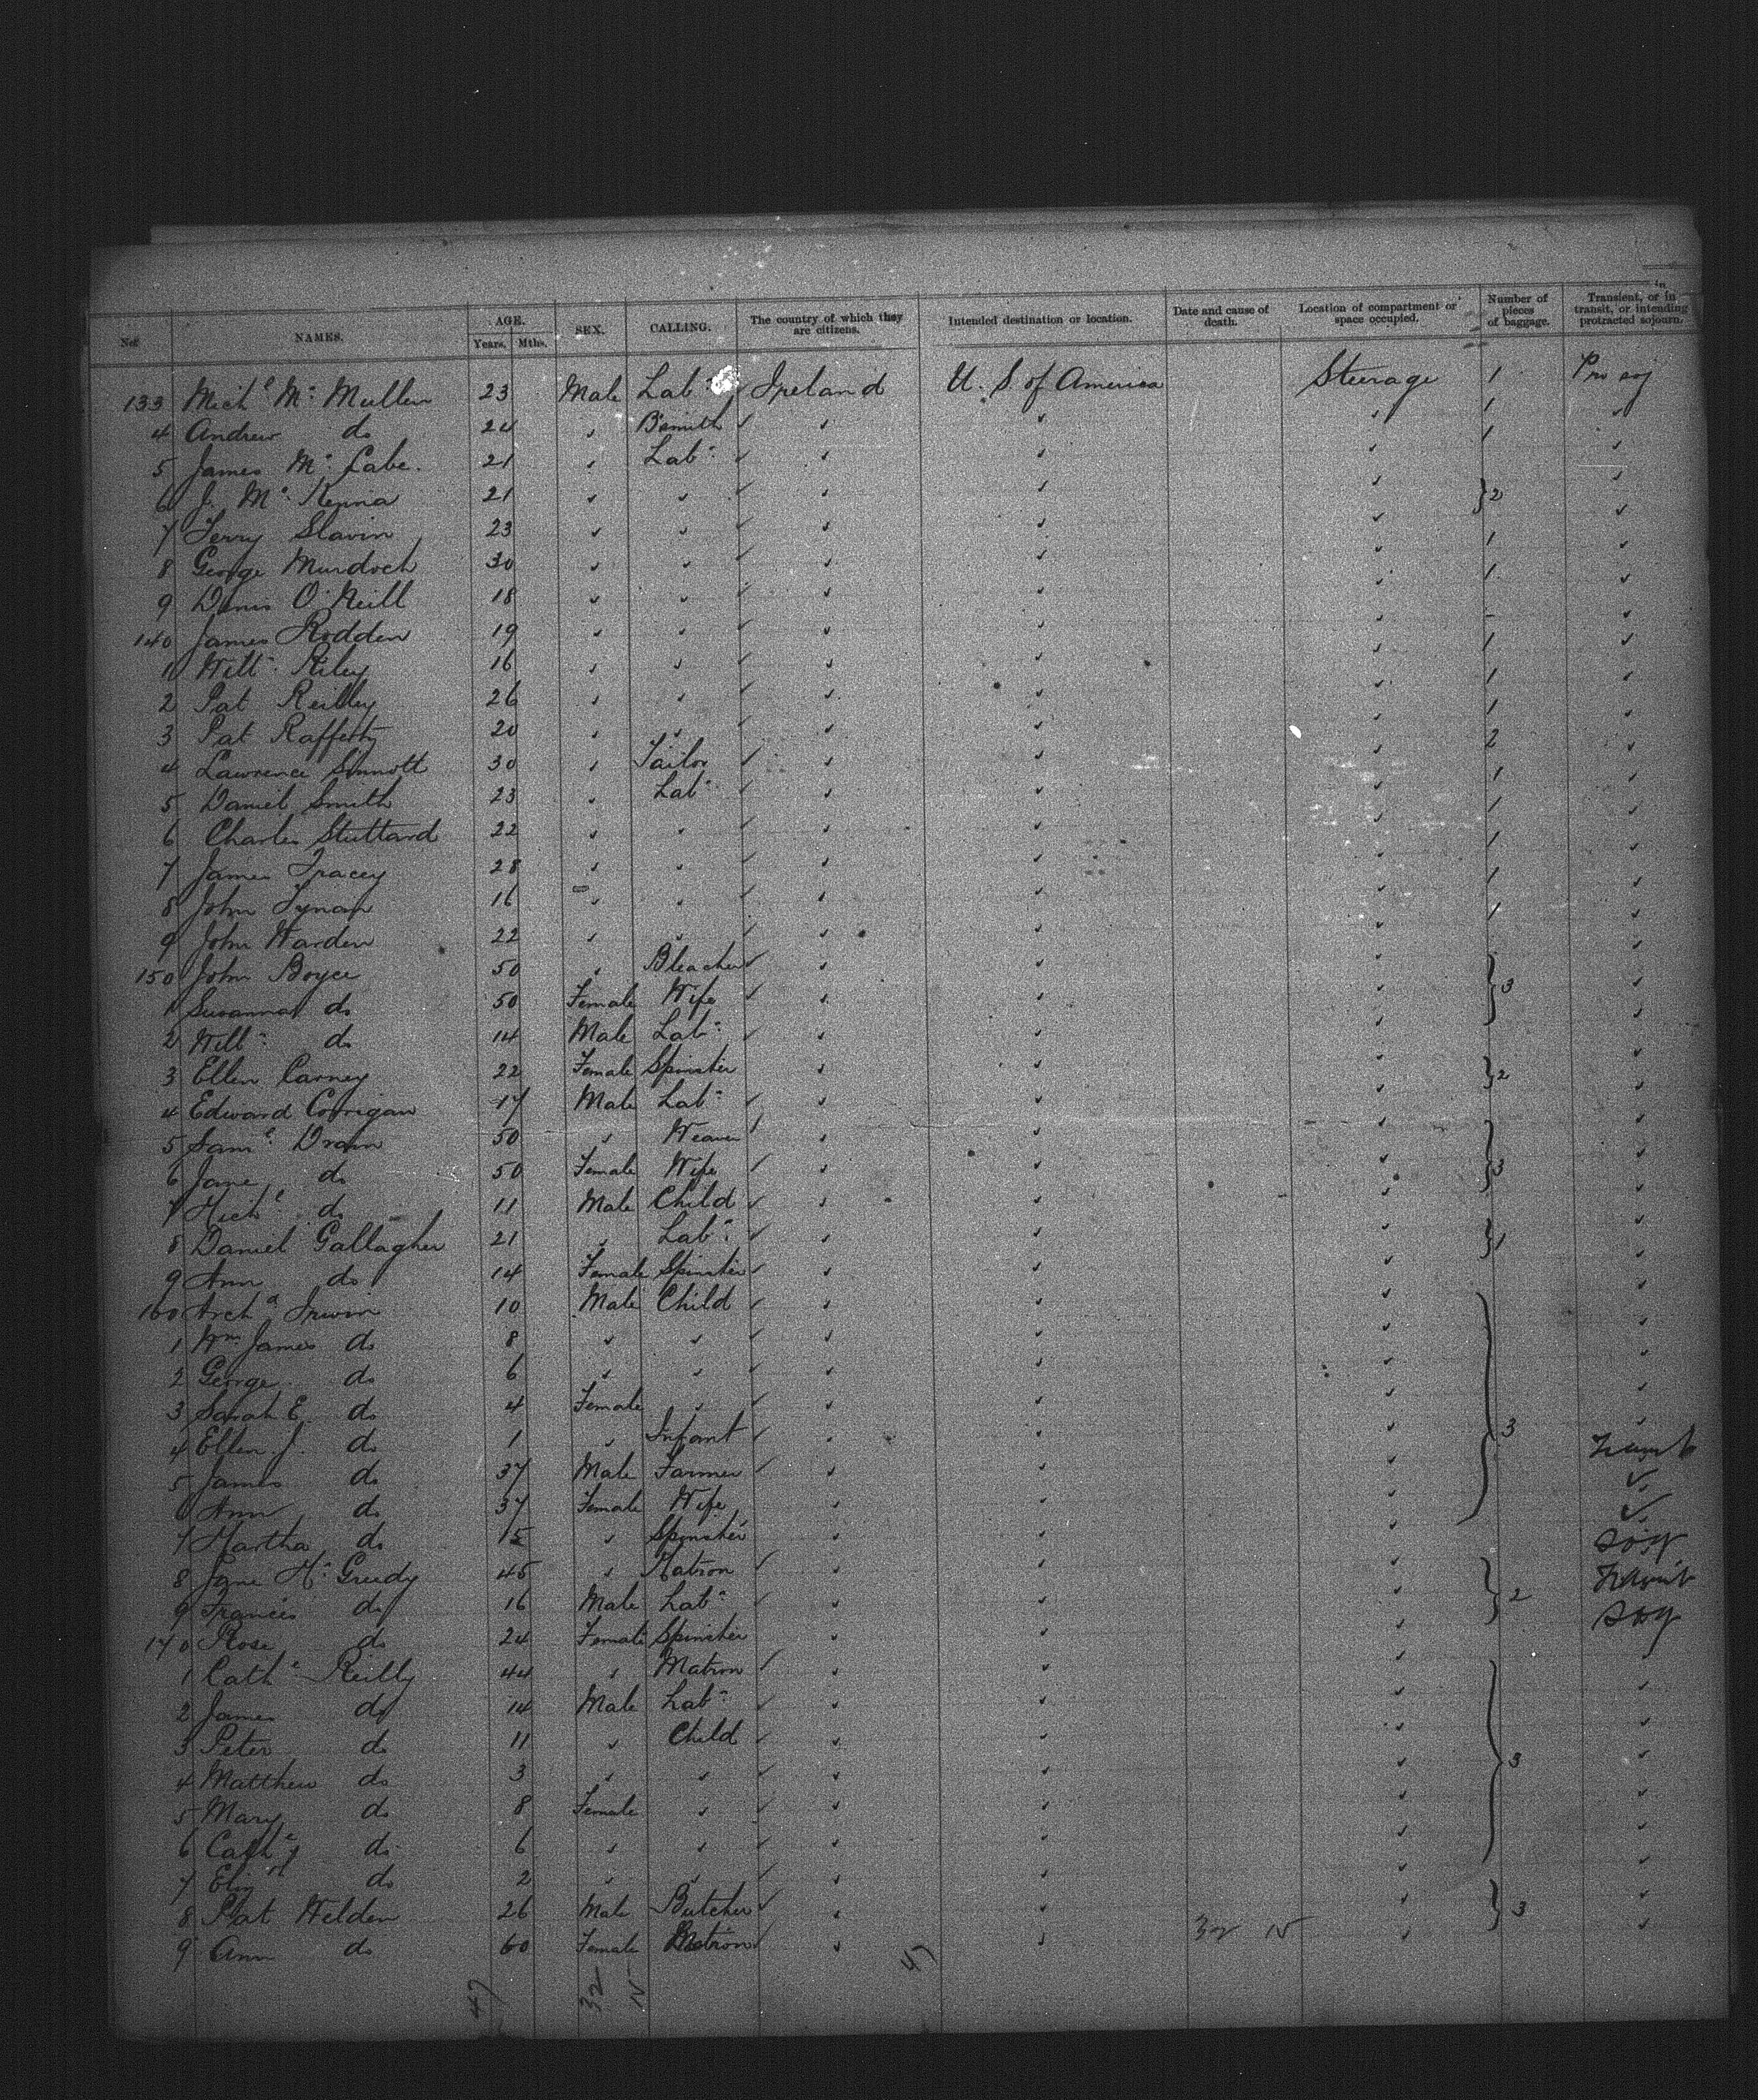 No. NAMES. AGE. Years. Mths. SEX. CALLING. The country of which they are citizens. Intended destination or location. Date and cause of death. Location of compartment or space occupied. Number of pieces of baggage. Transient, or in transit, or intending protracted sojourn.
133 Michl Mc Mullen 23 Male Lab Ireland U. S. of America Steerage 1 Pro soj
4 Andrew do 24 " Bsmith " " " 1 "
5 James Mc Cabe. 21 " Labr " " " 1 "
6 J. Mc Kenna 21 " " " " " } 2 "
7 Terry Slavin 23 " " " " " "
8 George Murdoch 30 " " " " " 1 "
9 Denis O'Neill 18 " " " " " 1 "
140 James Rodden 19 " " " " " - "
1 Willm Riley 16 " " " " " 1 "
2 Pat Reilley 26 " " " " " 1 "
3 Pat Rafferty 20 " " " " " 1 "
4 Lawrence Sinnott 30 " Tailor " " " 2 "
5 Daniel Smith 23 " Labr " " " 1 "
6 Charles Stuttard 22 " " " " " 1 "
7 James Tracey 28 " " " " " 1 "
8 John Tynan 16 " " " " " 1 "
9 John Warden 22 " " " " " 1 "
150 John Boyce 50 " Bleacher " " " } 3 "
1 Susannah do 50 Female Wife " " " "
2 Willm do 14 Male Labr " " " "
3 Ellen Carney 22 Female Spinster " " " } 2 "
4 Edward Corrigan 17 Male Labr " " " "
5 Saml Drain 50 " Weaver " " " } 3 "
6 Jane do 50 Female Wife " " " "
7 Michl do 11 Male Child " " " "
8 Daniel Gallagher 21 " Labr " " " } 1 "
9 Ann do 14 Female Spinster " " " "
160 Archd Irwin 10 Male Child " " " } 3 "
1 Wm James do 8 " " " " " "
2 George do 6 " " " " " "
3 Sarah E. do 4 Female " " " " "
4 Ellen J. do 1 " Infant " " "
5 James do 37 Male Farmer " " "
6 Ann do 37 Female Wife " " "
7 Martha do 15 " Spinster " " "
8 Jane Mc Greedy 45 " Matron " " " } 2
9 Francis do 16 Male Labr " " " soj
170 Rose do 24 Female Spinster " " "
1 Cathe Reilly 44 " Matron " " " } 3 "
2 James do 14 Male Labr " " " "
3 Peter do 11 " Child " " " "
4 Matthew do 3 " " " " " "
5 Mary do 8 Female " " " " "
6 Cathe do 6 " " " " " "
7 Elizth do 2 " " " " " "
8 Pat Welden 26 Male Butcher " " " } 3 "
9 Ann do 60 Female Matron " " 32 15 " "
47 32 15 47